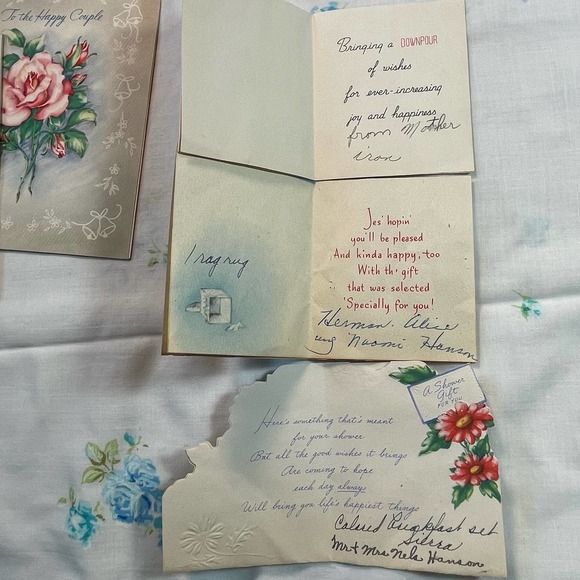 To the Happy Couple
Bringing a DOWNPOUR
of wishes
for ever-increasing
joy and happiness
from Mother
iron
1 rag rug
Jes' hopin'
you'll be pleased
And kinda happy, too
With th' gift
that was selected
'Specially for you!
Herman. Alice
Naomi Hanson
A Shower
Gift
FOR YOU
Here's something that's meant
for your shower
But all the good wishes it brings
Are coming to hope
each day always
Will bring you life's happiest things
Colored Breakfast set
Mr & Mrs Nels Hanson